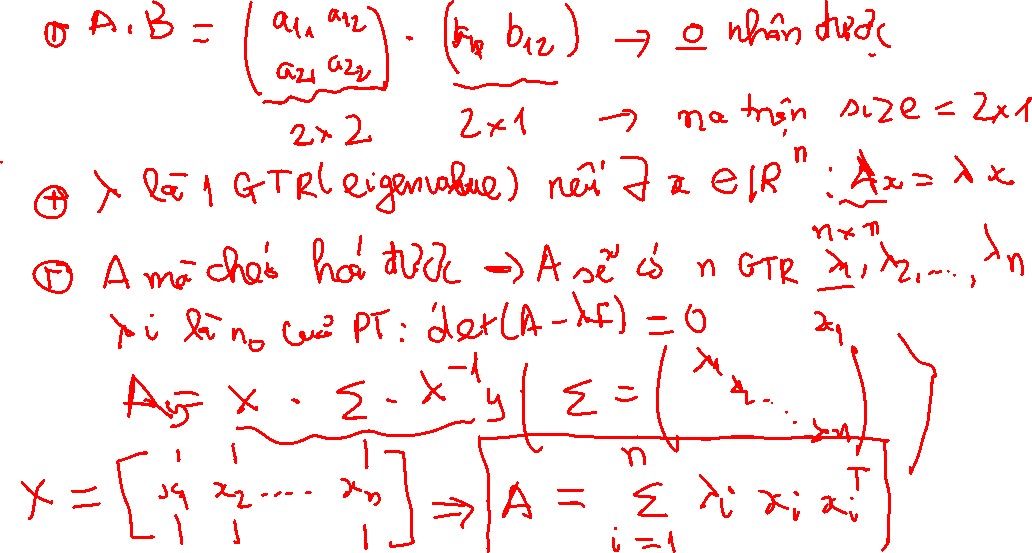 ⊕ A . B = ( a₁₁ a₁₂ a₂₁ a₂₂ ) . ( b₁₂ ) → 0 nhân được
2x2 2x1 → ma trận size = 2x1
⊕ λ là 1 GTR (eigenvalue) nếu ∃ x ∈ ℝⁿ : Ax = λx
n×n
⊕ A mà chéo hoá được → A sẽ có n GTR λ₁, λ₂, ..., λn
λi là n₀ của PT: det(A - λI) = 0 x₁
Ay = X . Σ . X⁻¹ y ( Σ = ( λ₁ λ₂ ... λn ) )
X = [ x₁ x₂ .... xn ] ⇒ A = Σ i=1 n λi xi xiᵀ